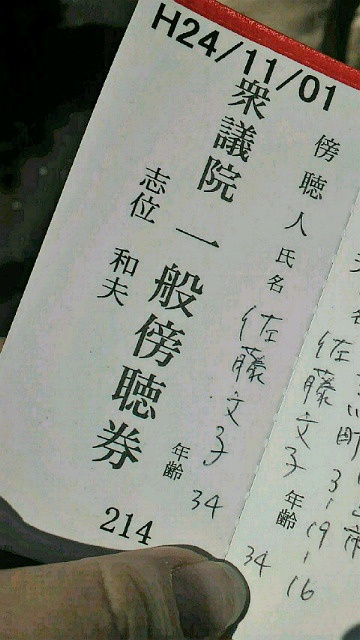 H24/11/01
傍聴人氏名 佐藤文子 年齢 34
衆議院
一般傍聴券
志位 和夫
214
佐藤文子 年齢 34
町3-19-16